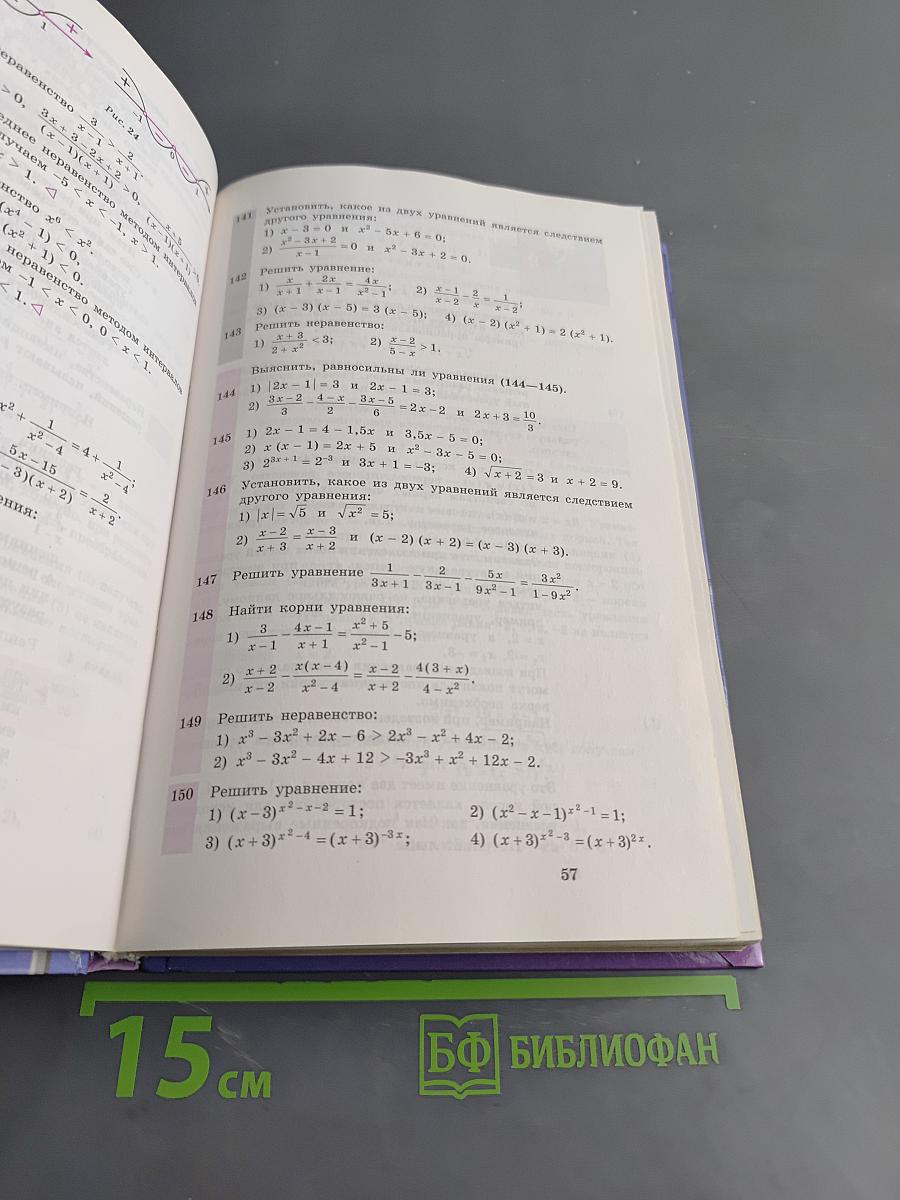 1
Рис. 24
-1
0
1
неравенство 3/(x − 1) > 2/(x + 1).
> 0, (3x + 3 − 2x + 2)/((x − 1)(x + 1)) > 0, (x + 5)/((x − 1)(x + 1)) > 0.
неравенство методом интервалов
получаем −5 < x < −1, x > 1.
> 1. ◁
x⁶ < x².
(x⁴ − 1) < 0,
(x² + 1) < 0.
неравенство методом интервалов
−1 < x < 0, 0 < x < 1.
< 1. ◁
x² + 1/(x² − 4) = 4 + 1/(x² − 4);
(5x − 15)/((x − 3)(x + 2)) = 2/(x + 2).
141 Установить, какое из двух уравнений является следствием
другого уравнения:
1) x − 3 = 0 и x² − 5x + 6 = 0;
2) (x² − 3x + 2)/(x − 1) = 0 и x² − 3x + 2 = 0.
142 Решить уравнение:
1) x/(x + 1) + 2x/(x − 1) = 4x/(x² − 1); 2) (x − 1)/(x − 2) − 2/x = 1/(x − 2);
3) (x − 3) (x − 5) = 3 (x − 5); 4) (x − 2) (x² + 1) = 2 (x² + 1).
143 Решить неравенство:
1) (x + 3)/(2 + x²) < 3; 2) (x − 2)/(5 − x) > 1.
Выяснить, равносильны ли уравнения (144—145).
144 1) |2x − 1| = 3 и 2x − 1 = 3;
2) (3x − 2)/3 − (4 − x)/2 − (3x − 5)/6 = 2x − 2 и 2x + 3 = 10/3.
145 1) 2x − 1 = 4 − 1,5x и 3,5x − 5 = 0;
2) x (x − 1) = 2x + 5 и x² − 3x − 5 = 0;
3) 2^(3x + 1) = 2^(−3) и 3x + 1 = −3; 4) √(x + 2) = 3 и x + 2 = 9.
146 Установить, какое из двух уравнений является следствием
другого уравнения:
1) |x| = √5 и √(x²) = 5;
2) (x − 2)/(x + 3) = (x − 3)/(x + 2) и (x − 2) (x + 2) = (x − 3) (x + 3).
147 Решить уравнение 1/(3x + 1) − 2/(3x − 1) − 5x/(9x² − 1) = 3x²/(1 − 9x²).
148 Найти корни уравнения:
1) 3/(x − 1) − (4x − 1)/(x + 1) = (x² + 5)/(x² − 1) − 5;
2) (x + 2)/(x − 2) − x(x − 4)/(x² − 4) = (x − 2)/(x + 2) − 4(3 + x)/(4 − x²).
149 Решить неравенство:
1) x³ − 3x² + 2x − 6 > 2x³ − x² + 4x − 2;
2) x³ − 3x² − 4x + 12 > −3x³ + x² + 12x − 2.
150 Решить уравнение:
1) (x − 3)^(x² − x − 2) = 1; 2) (x² − x − 1)^(x² − 1) = 1;
3) (x + 3)^(x² − 4) = (x + 3)^(−3x); 4) (x + 3)^(x² − 3) = (x + 3)^(2x).
57
15 см
БФ БИБЛИОФАН